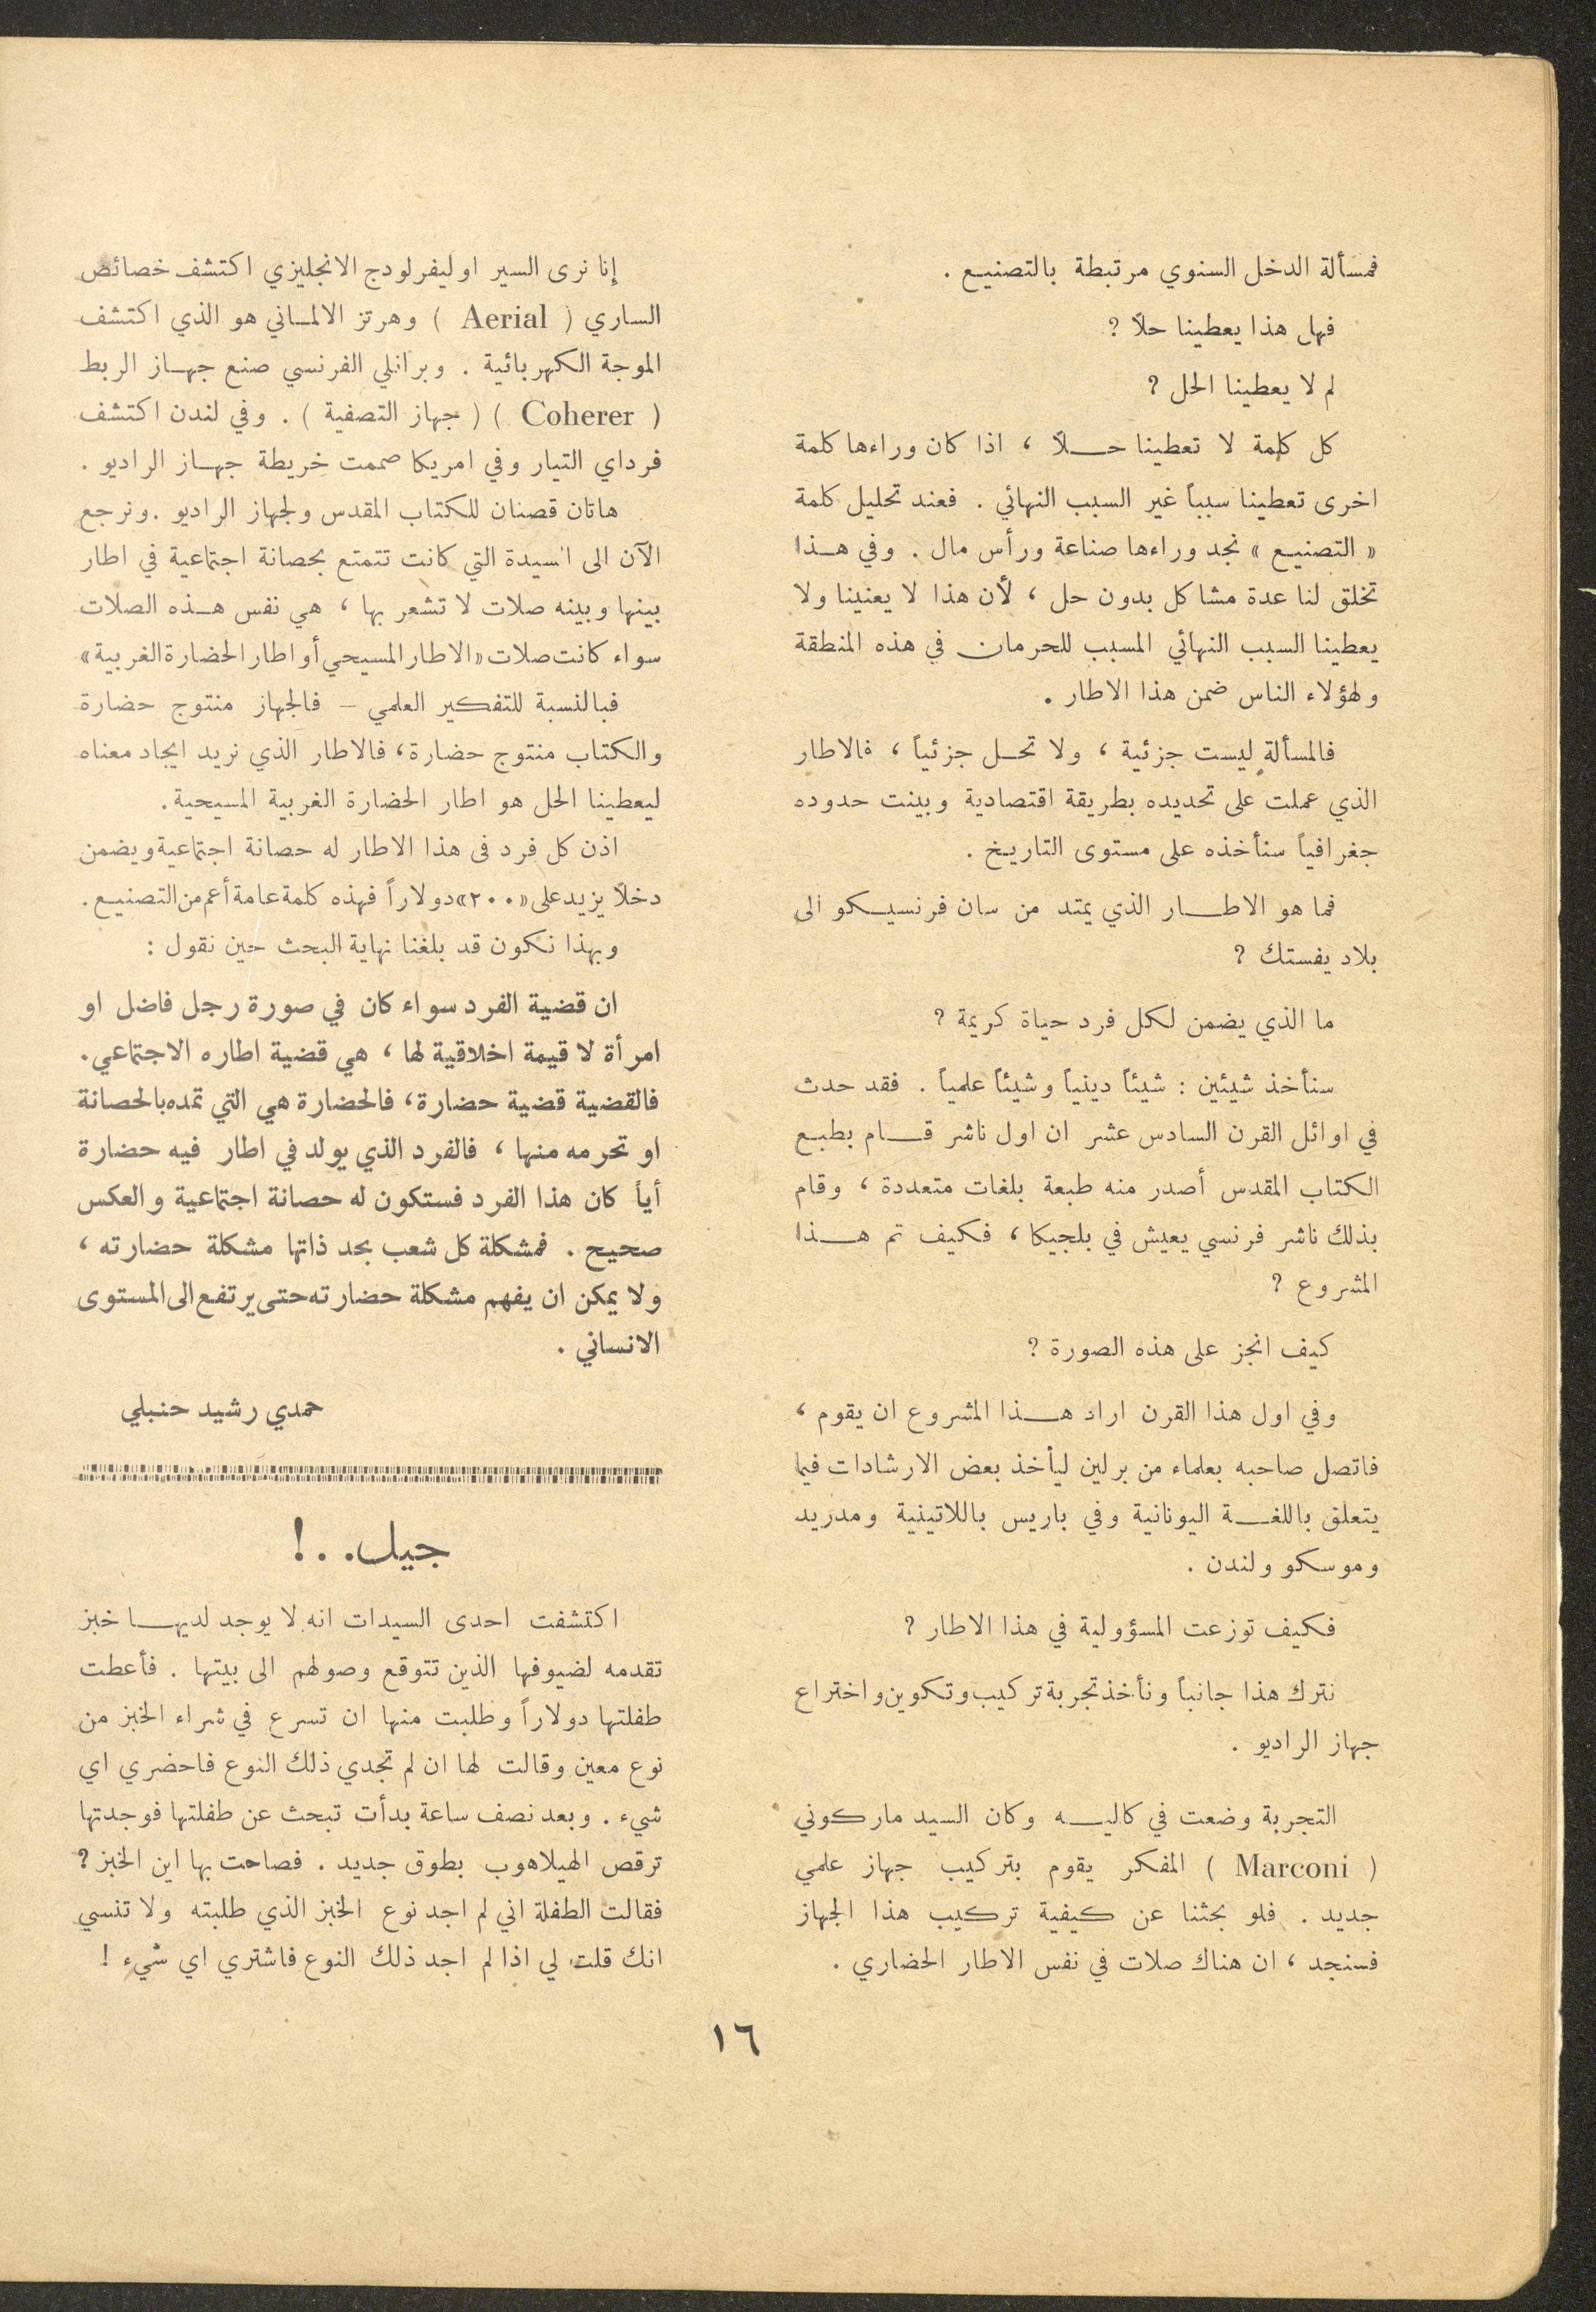 فمسألة الدخل السنوي مرتبطة بالتصنيع .
فهل هذا يعطينا حلاً ؟
لم لا يعطينا الحل ؟
كل كلمة لا تعطينا حلاً ، اذا كان وراءها كلمة
اخرى تعطينا سبباً غير السبب النهائي . فعند تحليل كلمة
« التصنيع » نجد وراءها صناعة ورأس مال . وفي هذا
تخلق لنا عدة مشاكل بدون حل ، لأن هذا لا يعنينا ولا
يعطينا السبب النهائي المسبب للحرمان في هذه المنطقة
ولهؤلاء الناس ضمن هذا الاطار .
فالمسألة ليست جزئية ، ولا تحل جزئياً ، فالاطار
الذي عملت على تحديده بطريقة اقتصادية وبينت حدوده
جغرافياً سنأخذه على مستوى التاريخ .
فما هو الاطار الذي يمتد من سان فرنسيكو الى
بلاد يفستك ؟
ما الذي يضمن لكل فرد حياة كريمة ؟
سنأخذ شيئين : شيئاً دينياً وشيئاً علمياً . فقد حدث
في اوائل القرن السادس عشر ان اول ناشر قام بطبع
الكتاب المقدس أصدر منه طبعة بلغات متعددة ، وقام
بذلك ناشر فرنسي يعيش في بلجيكا ، فكيف تم هذا
المشروع ؟
كيف انجز على هذه الصورة ؟
وفي اول هذا القرن اراد هذا المشروع ان يقوم ،
فاتصل صاحبه بعلماء من برلين ليأخذ بعض الارشادات فيما
يتعلق باللغة اليونانية وفي باريس باللاتينية ومدريد
وموسكو ولندن .
فكيف توزعت المسؤولية في هذا الاطار ؟
نترك هذا جانباً ونأخذ تجربة تركيب وتكوين واختراع
جهاز الراديو .
التجربة وضعت في كاليه وكان السيد ماركوني
( Marconi ) المفكر يقوم بتركيب جهاز علمي
جديد . فلو بحثنا عن كيفية تركيب هذا الجهاز
فسنجد ، ان هناك صلات في نفس الاطار الحضاري .
إنا نرى السير اوليفرلودج الانجليزي اكتشف خصائص
الساري ( Aerial ) وهرتز الالماني هو الذي اكتشف
الموجة الكهربائية . وبرانلي الفرنسي صنع جهاز الربط
( Coherer ) ( جهاز التصفية ) . وفي لندن اكتشف
فرداي التيار وفي امريكا صممت خريطة جهاز الراديو .
هاتان قصتان للكتاب المقدس ولجهاز الراديو . ونرجع
الآن الى السيدة التي كانت تتمتع بحصانة اجتماعية في اطار
بينها وبينه صلات لا تشعر بها ، هي نفس هذه الصلات
سواء كانت صلات «الاطار المسيحي أو اطار الحضارة الغربية»
فبالنسبة للتفكير العلمي – فالجهاز منتوج حضارة
والكتاب منتوج حضارة، فالاطار الذي نريد ايجاد معناه
ليعطينا الحل هو اطار الحضارة الغربية المسيحية .
اذن كل فرد في هذا الاطار له حصانة اجتماعية ويضمن
دخلاً يزيد على «٢٠٠» دولاراً فهذه كلمة عامة أعم من التصنيع .
وبهذا نكون قد بلغنا نهاية البحث حين نقول :
ان قضية الفرد سواء كان في صورة رجل فاضل او
امرأة لا قيمة اخلاقية لها ، هي قضية اطاره الاجتماعي .
فالقضية قضية حضارة، فالحضارة هي التي تمده بالحصانة
او تحرمه منها ، فالفرد الذي يولد في اطار فيه حضارة
أياً كان هذا الفرد فستكون له حصانة اجتماعية والعكس
صحيح . فمشكلة كل شعب بحد ذاتها مشكلة حضارته ،
ولا يمكن ان يفهم مشكلة حضارته حتى يرتفع الى المستوى
الانساني .
حمدي رشيد حنبلي
جيل . . !
اكتشفت احدى السيدات انه لا يوجد لديها خبز
تقدمه لضيوفها الذين تتوقع وصولهم الى بيتها . فأعطت
طفلتها دولاراً وطلبت منها ان تسرع في شراء الخبز من
نوع معين وقالت لها ان لم تجدي ذلك النوع فاحضري اي
شيء . وبعد نصف ساعة بدأت تبحث عن طفلتها فوجدتها
ترقص الهيلاهوب بطوق جديد . فصاحت بها اين الخبز ؟
فقالت الطفلة اني لم اجد نوع الخبز الذي طلبته ولا تنسي
انك قلت لي اذا لم اجد ذلك النوع فاشتري اي شيء !
١٦